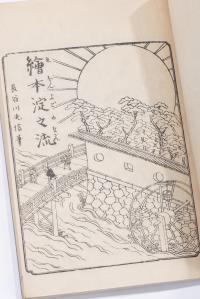 繪本淀之流
長谷川光信筆